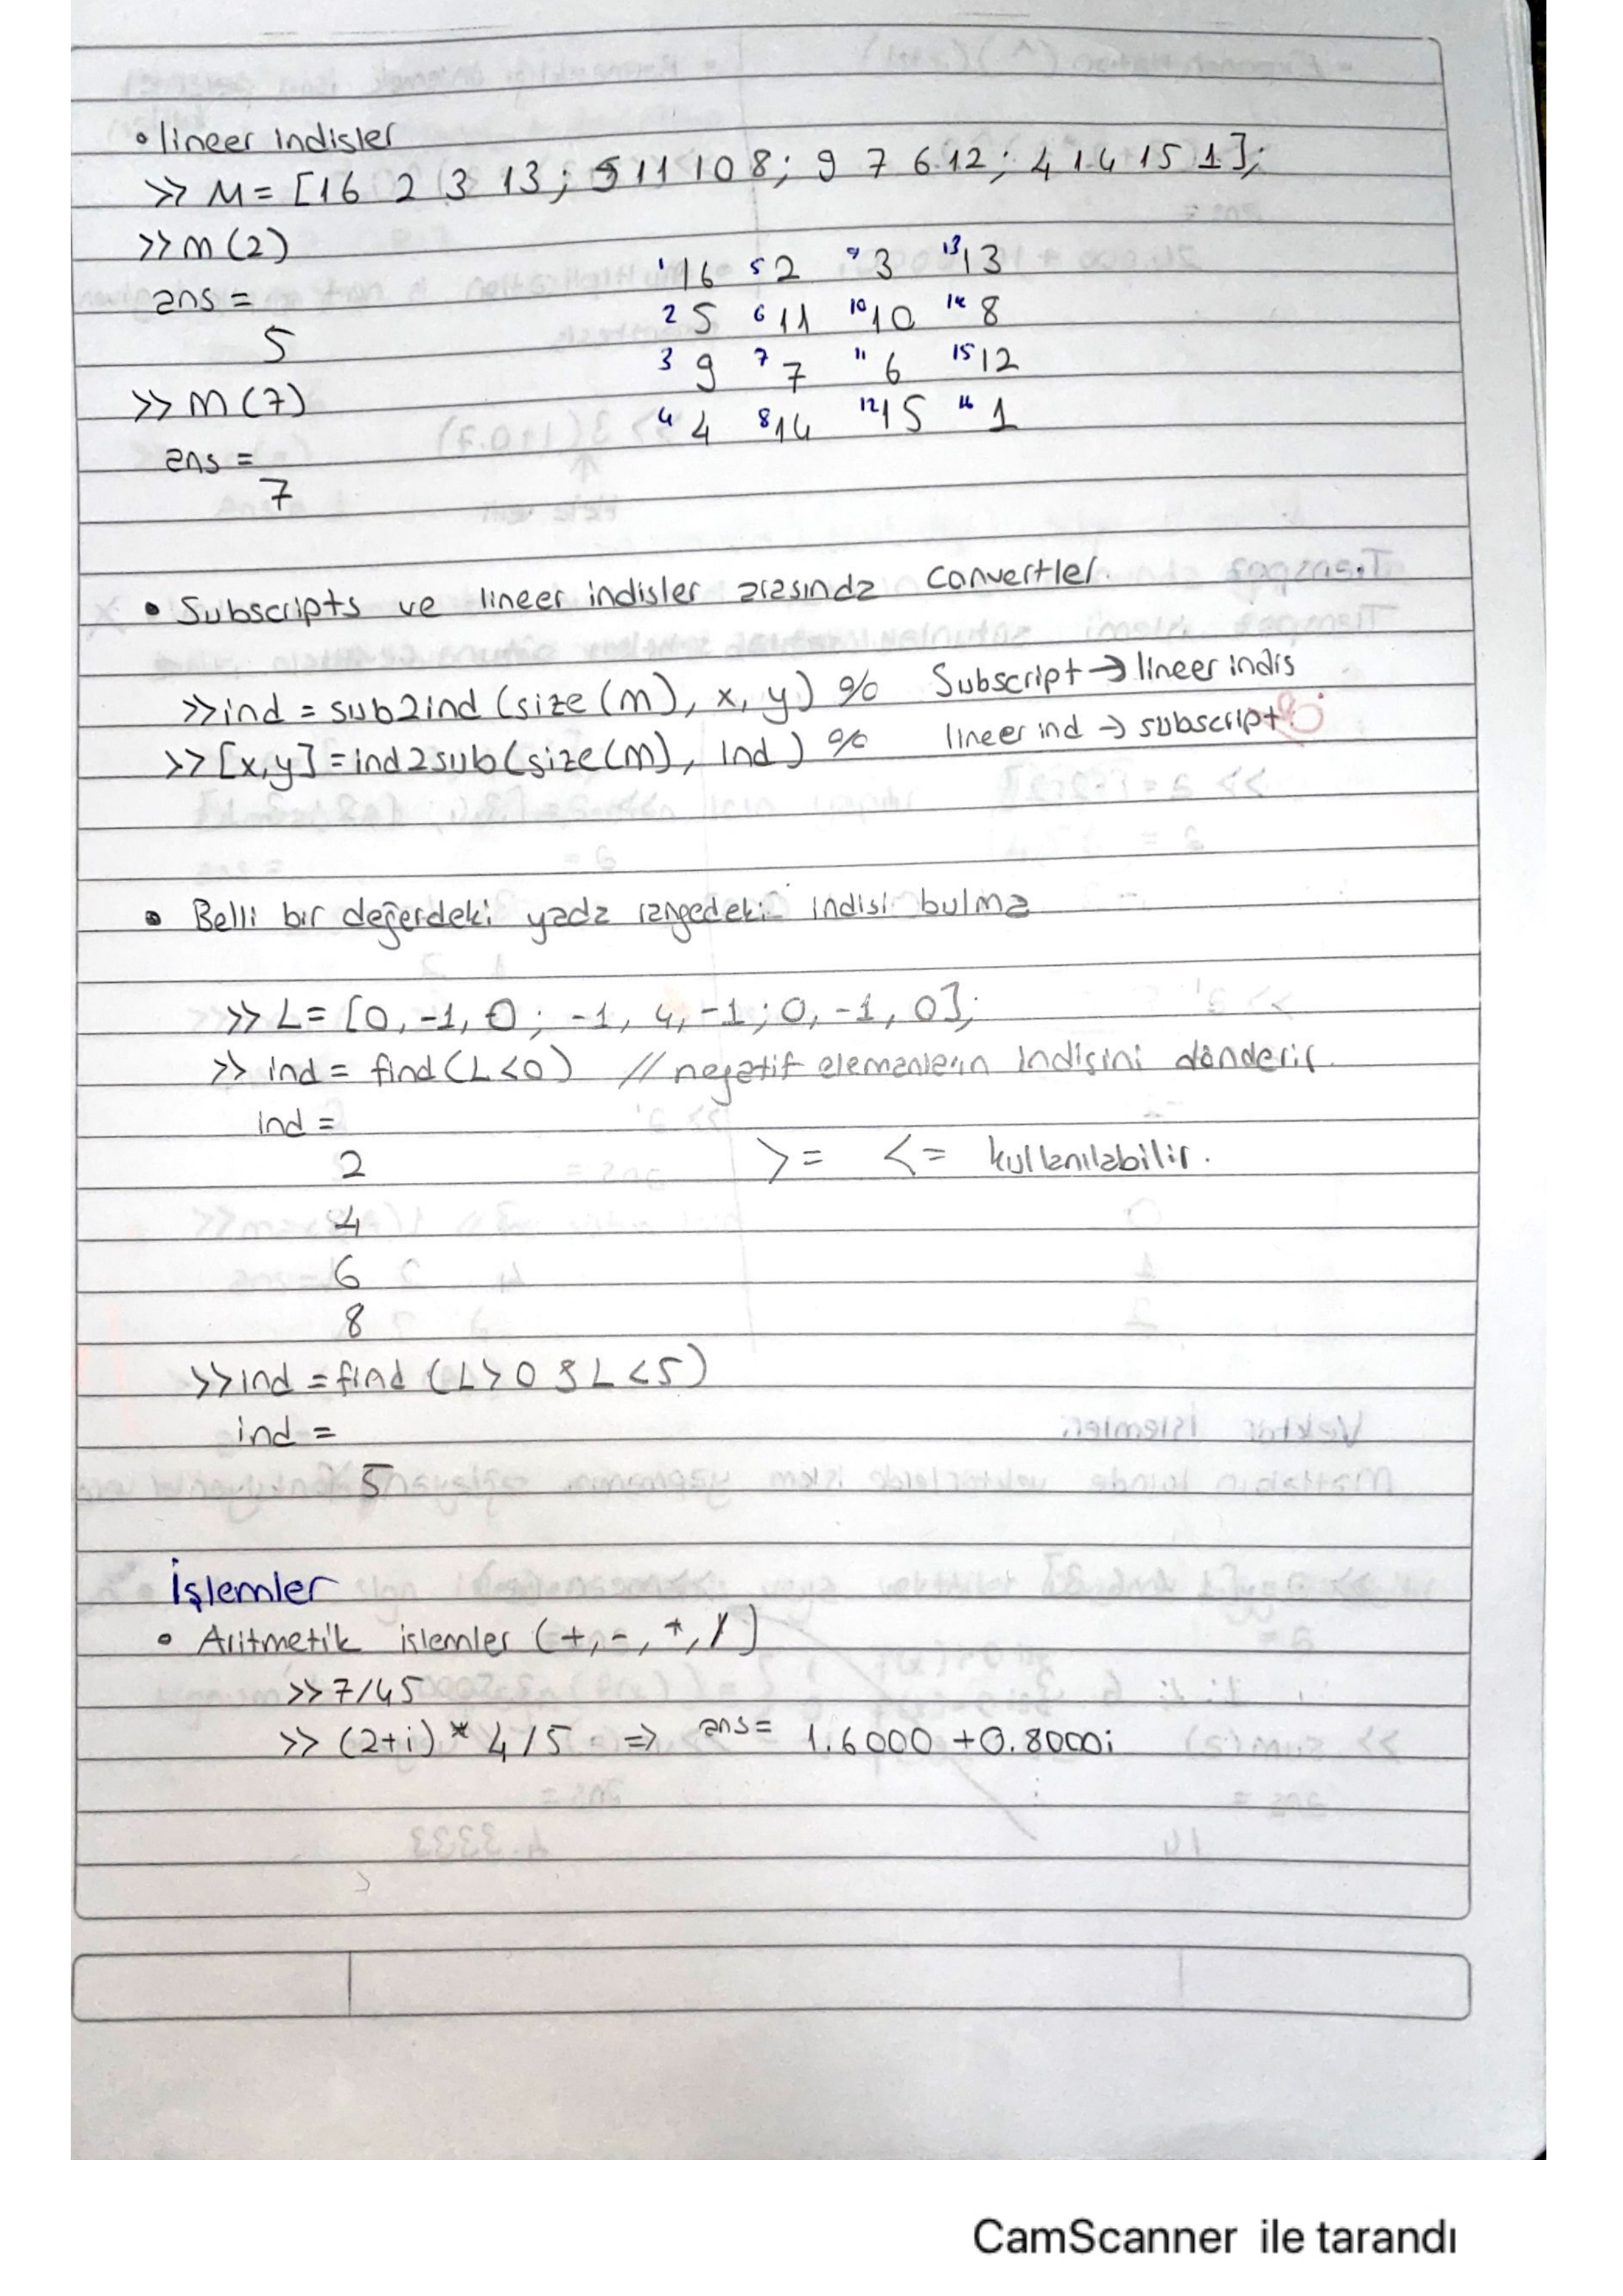 • lineer indisler
>> M = [16 2 3 13; 5 11 10 8; 9 7 6 12; 4 14 15 1];
>> m(2)
ans =
5
>> m(7)
ans =
7
1 16 5 2 9 3 13 13
2 5 6 11 10 10 14 8
3 9 7 7 11 6 15 12
4 4 8 14 12 15 16 1
• Subscripts ve lineer indisler arasında convertler.
>> ind = sub2ind (size(m), x, y) % Subscript → lineer indis
>> [x,y] = ind2sub(size(m), ind) % lineer ind → subscript
• Belli bir değerdeki yada rangedeki indisi bulma
>> L = [0, -1, 0; -1, 4, -1; 0, -1, 0];
>> ind = find(L<0) // negatif elemanların indisini dönderir.
ind =
2
4
6
8
>= <= kullanılabilir.
>> ind = find (L>0 & L<5)
ind =
5
İşlemler
• Aritmetik işlemler (+, -, *, /)
>> 7/45
>> (2+i) * 4/5 => ans = 1.6000 + 0.8000i
CamScanner ile tarandı